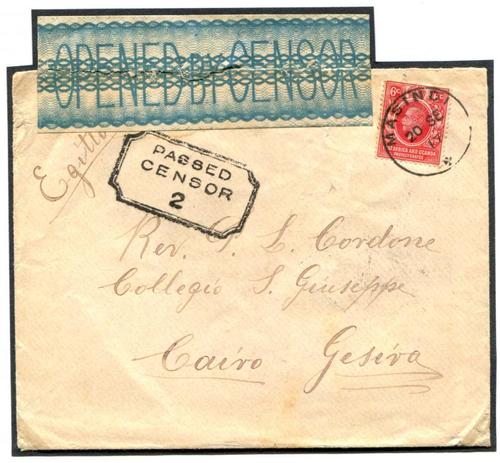 OPENED BY CENSOR
6c
EAST AFRICA AND UGANDA
PROTECTORATES
MASIND
20 SE
Egitto
PASSED
CENSOR
2
Rev. G. L. Cordone
Collegio S. Giuseppe
Cairo - Gesira